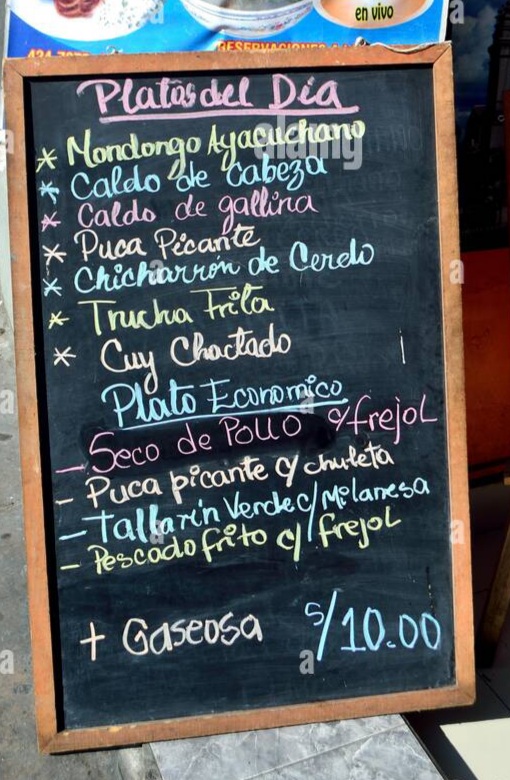 en vivo
RESERVACIONES
Platos del Día
* Mondongo Ayacuchano
* Caldo de cabeza
* Caldo de gallina
* Puca Picante
* Chicharrón de Cerdo
* Trucha Frita
* Cuy Chactado
Plato Economico
- Seco de Pollo c/frejol
- Puca picante c/ chuleta
- Tallarín Verde c/ Milanesa
- Pescado frito c/ frejol
+ Gaseosa S/10.00
alamy